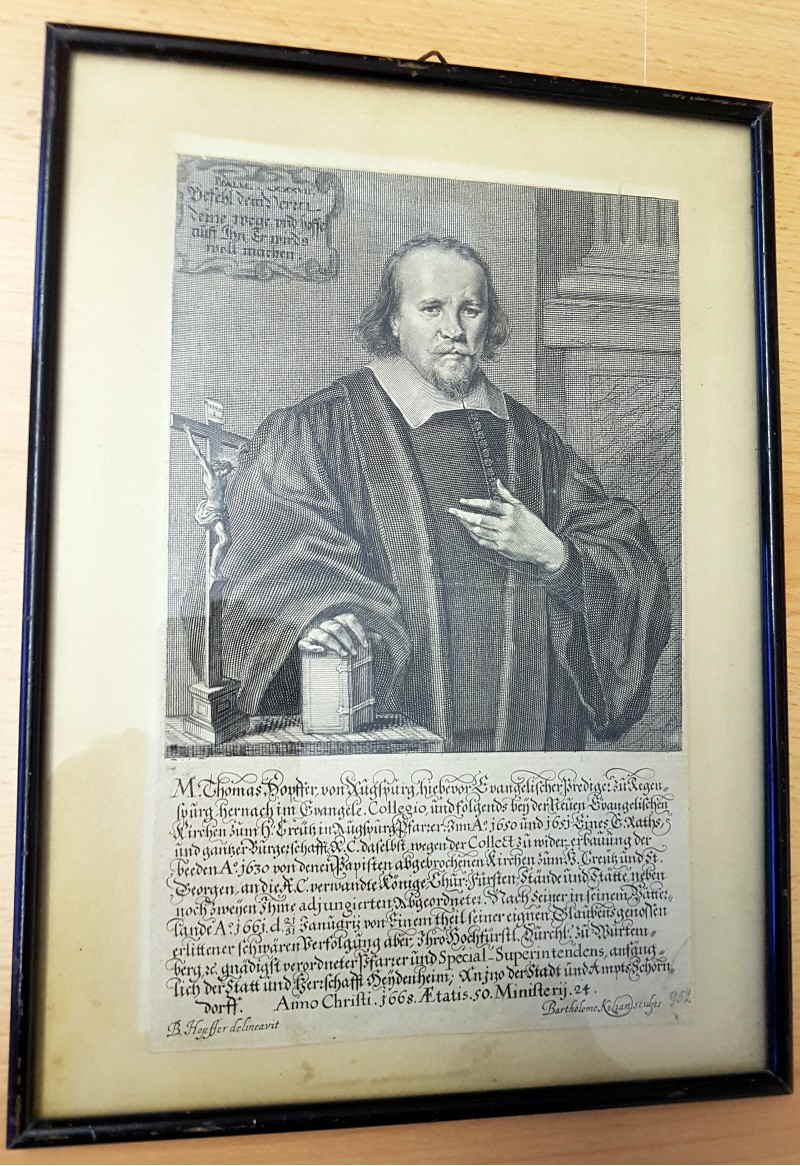 Befehl dem Herrn
deine wege und hoffe
auff Ihn Er wirds
woll machen.
M. Thomas Hopffer, von Augspurg, hiebevor Evangelischer Prediger zu Regen-
spurg, hernach im Evangele. Collegio, und folgends bey der Neuen Evangelischen
Kirchen zum H. Creütz in Augspurg Pfarrer. Inn Aº. 1650 und 1651 Eines E. Raths,
und gantzer Bürgerschafft A. C. daselbst, wegen der Collect zu wider erbauung der
beeden Aº. 1630 von denen Papisten abgebrochenen Kirchen zum H. Creütz und St.
Georgen, an die A. C. verwandte Könige, Chur-Fürsten, Stände und Stätte neben
noch zweyen Ihme adjungierten Abgeordneter. Nach seiner in seinem Vatter-
lande Aº. 1661. d. 21/31 Januarij von Einem theil seiner eignen Glaubensgenossen
erlittener schwären Verfolgung aber, Ihro Hochfürstl. Durchl. zu Würtem-
berg &c. gnädigst verordneter Pfarrer und Special-Superintendens, anfäng-
lich der Statt und Herrschafft Heydenheim, Anjzo der Stadt und Ampts Schorn-
dorff. Anno Christi. 1668. Ætatis. 50. Ministerij. 24.
B. Hopffer delineavit
Bartholome Kilian sculps
952